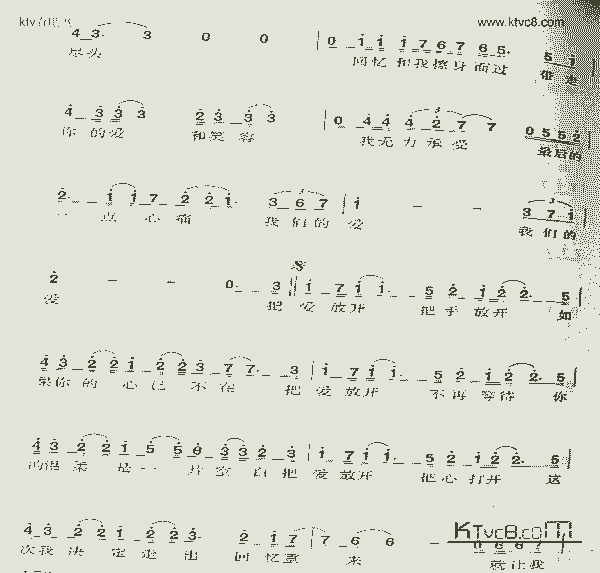 www.ktvc8.com
4 3. 3 0 0 | 0 1 1 1 7 6 7 6 5. 5 1
尽头 回忆 和我擦身而过 带走
4 3 3 3 2 3 3 3 | 0 4 4 4 2 7 7 0 5 5 2
你的爱 和笑容 我无力承受 最后的
2. 1 1 7 2 2 1. 3 6 7 | 1 - - 3 7 1
一点心痛 我们的爱 我们的
2 - - 0. 3 1. 7 1 1. 5 2. 1 2 2. 5
爱 把爱放开 把手放开 如
4 3. 2 2 1. 2 2 3. 7 7. 3 | 1. 7 1 1. 5 2. 1 2 2. 5
果你的心已不在 把爱放开 不再等待 你
4 3. 2 2 1. 5 5 3 3 2. 3 | 1. 7 1 1. 5 2. 1 2 2. 5
的温柔是一片空白把爱放开 把心打开 这
4 3. 2 2 1. 2 2 3. 2. 1 7 | 7. 6 6 -
次我决定走出回忆重来 就让我
KTvc8.com